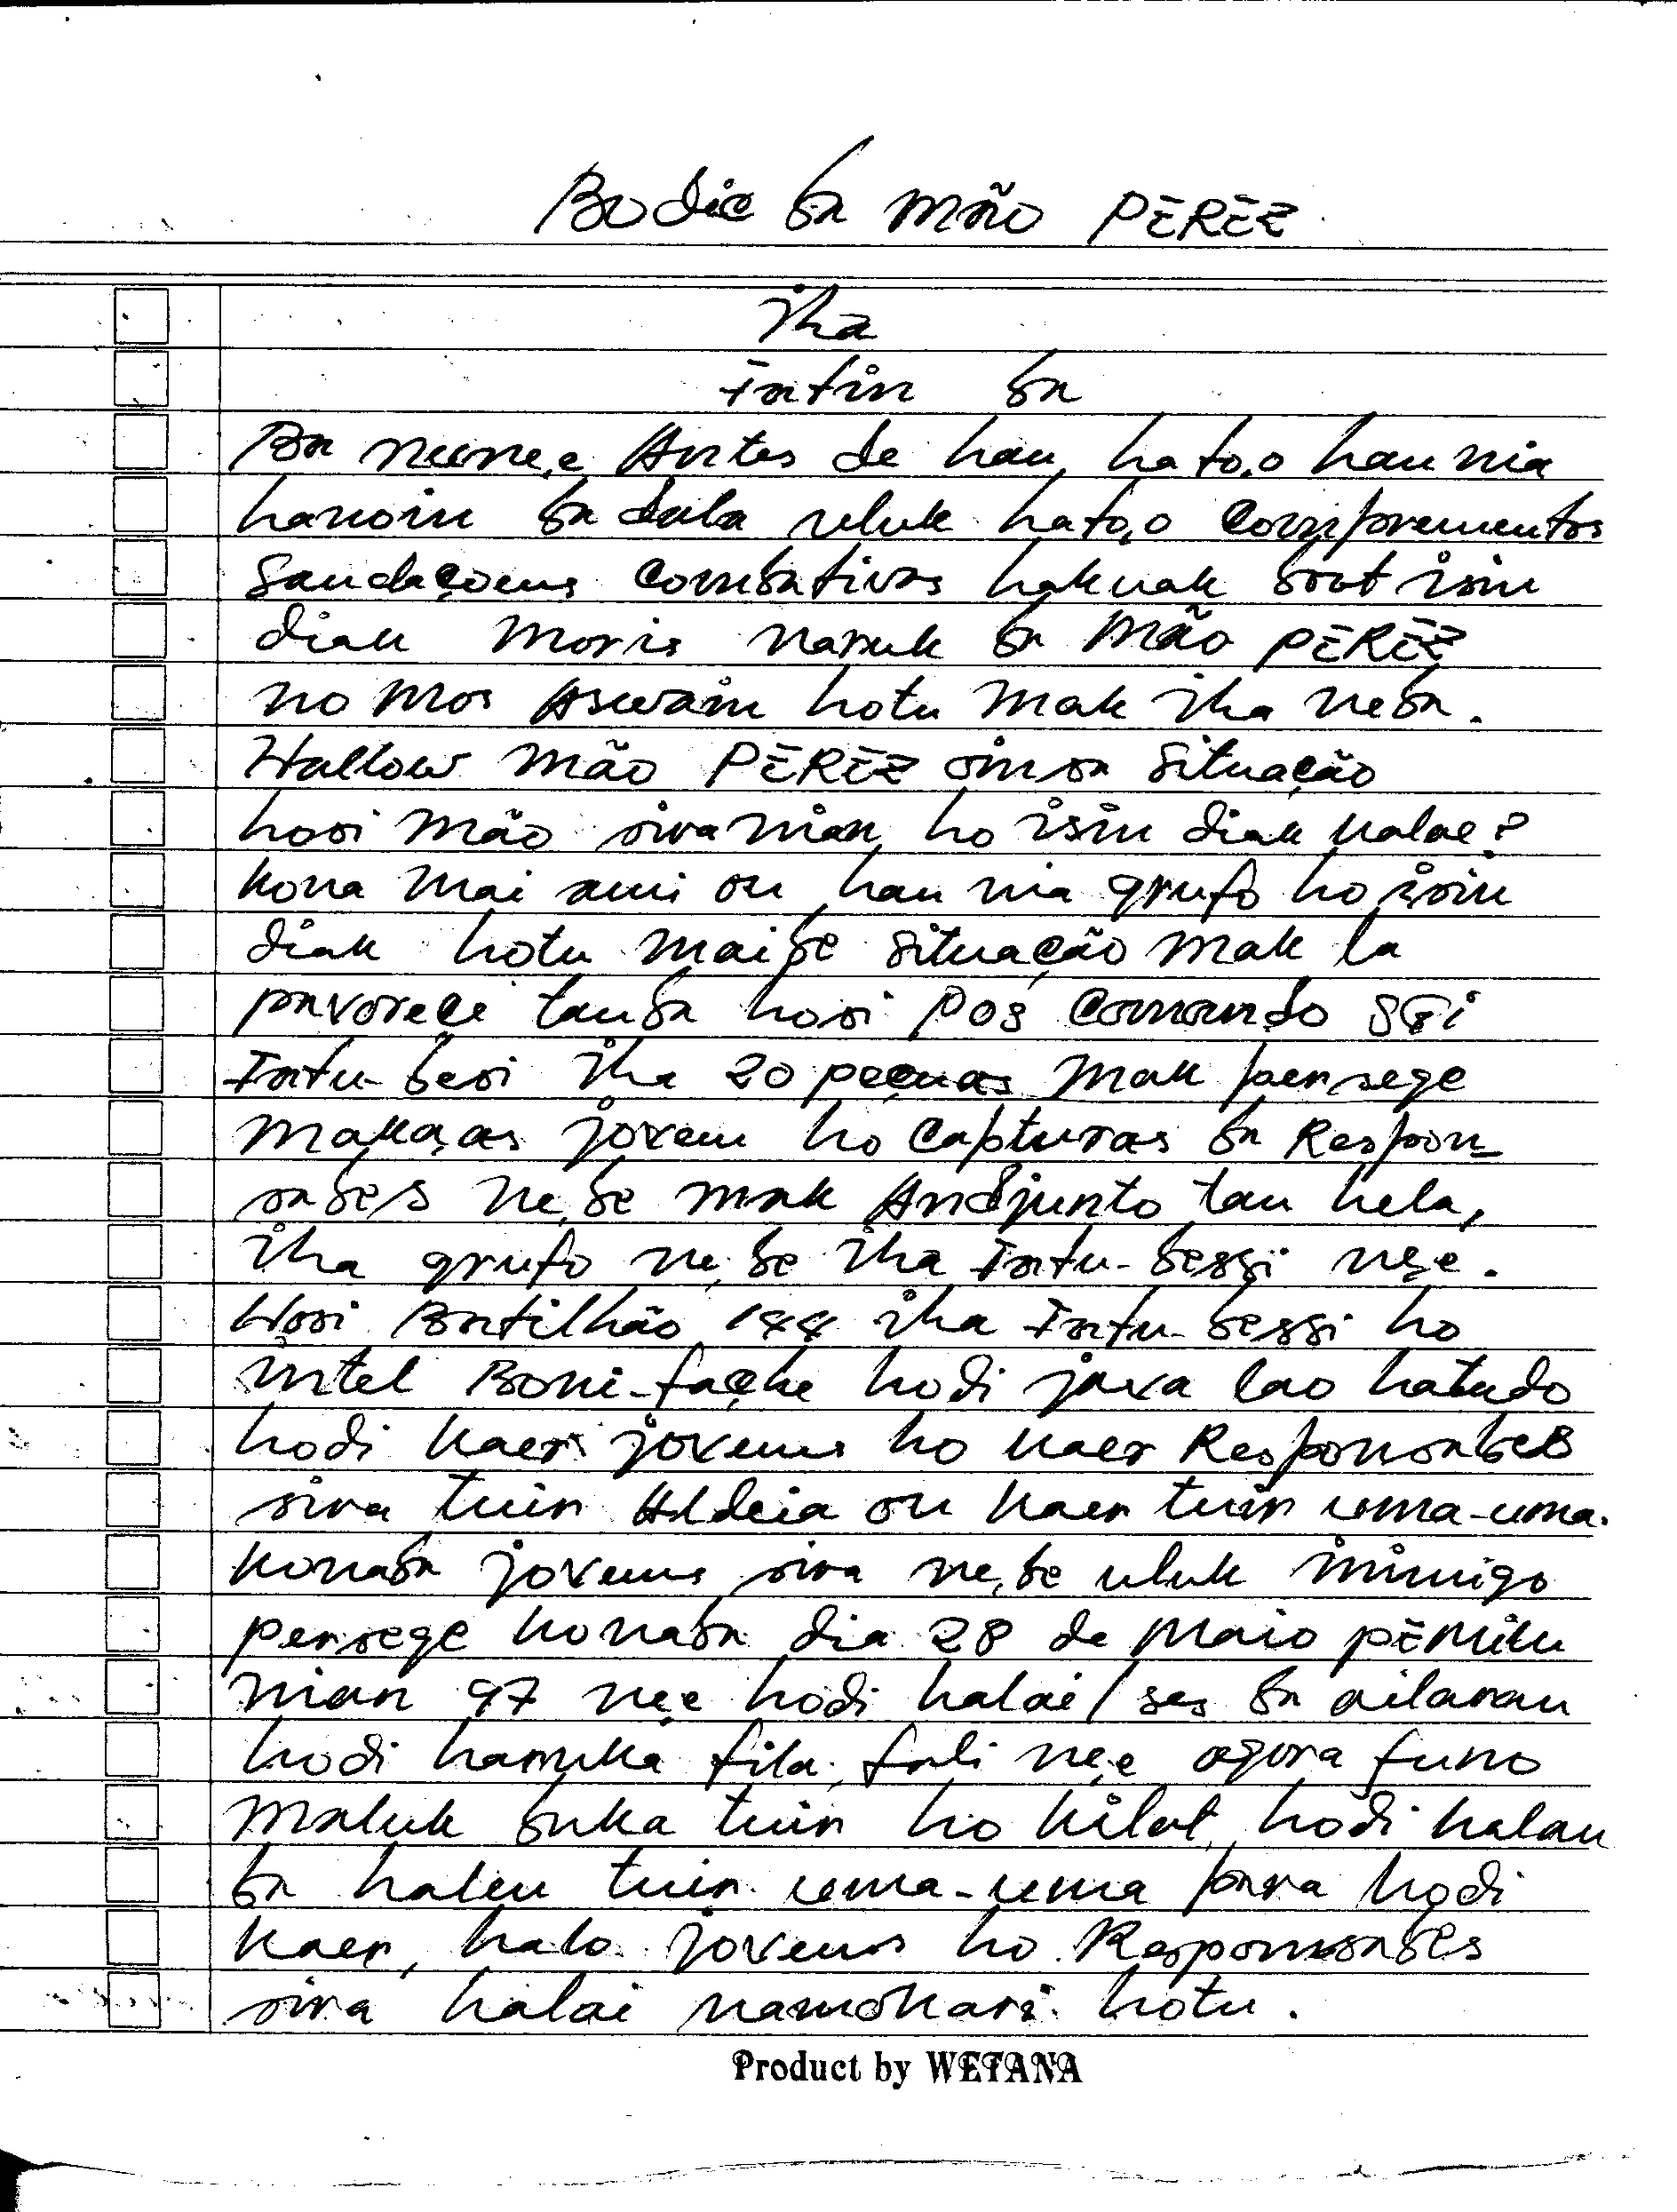 Bodic ba mão PEREZ
iha
Fatin ba
Ba neene,e Antes de hau, hato,o hau nia
hanoin ba dala uluk hato,o Comprementos
Saudaçoens Combativas hakuak boot isin
diak moris naruk ba Mão PEREZ
no mos Aswain hotu mak iha neba.
Hallow mão PEREZ oinsa situação
hosi mão sira nian, ho isin diak kalae?
kona mai ami ou hau nia grupo ho isin
diak hotu maibe situação mak la
pavoreçe tanba hosi pos Comando SGi
Fatu-besi iha 20 peçuas mak persege
makaças jovem ho Capturas ba Respon-
sabes ne,be mak Andjunto tau hela,
iha grupo ne,be iha Fatu-bessi neȩe.
Hosi Batilhão 144 iha Fatu-bessi ho
intel Boni-façhe hodi java lao hatudo
hodi kaer jovens ho kaer Responsabes
sira tuir Aldeia ou kaer tuir uma-uma.
konaba jovens sira ne,be uluk inimigo
persege konaba dia 28 de Maio pEmilu
nian 97 neȩe hodi halai/ses ba ailaran
hodi hamuka fila, fali neȩe agora funo
maluk buka tuir ho kilat, hodi halau
ba haleu tuir uma-uma para hodi
kaer, halo jovens ho Responsabes
sira halai namokari hotu.
Product by WETANA